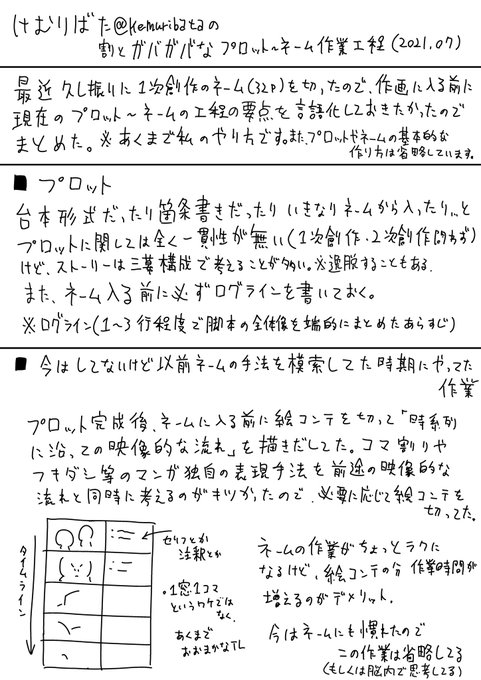 けむりばた@kemuribataの
割とガバガバなプロット〜ネーム作業工程(2021.07)
最近久し振りに1次創作のネーム(32P)を切ったので、作画に入る前に
現在のプロット〜ネームの工程の要点を言語化しておきたかったので
まとめた。※あくまで私のやり方です。また、プロットやネームの基本的な
作り方は省略しています。
■ プロット
台本形式だったり箇条書きだったりいきなりネームから入ったり…と
プロットに関しては全く一貫性が無い(1次創作、2次創作問わず)
けど、ストーリーは三幕構成で考えることが多い。※逸脱することもある.
また、ネーム入る前に必ずログラインを書いておく。
※ログライン(1〜3行程度で脚本の全体像を端的にまとめたあらすじ)
■ 今はしてないけど以前ネームの手法を模索してた時期にやってた
作業
プロット完成後、ネームに入る前に絵コンテを切って「時系列
に沿っての映像的な流れ」を描きだしてた。コマ割りや
フキダシ等のマンガ独自の表現手法を前途の映像的な
流れと同時に考えるのがキツかったので、必要に応じて絵コンテを
切ってた。
タイムライン
セリフとか
注釈とか
・1窓1コマ
というワケでは
なく、
あくまで
おおまかなTL
ネームの作業がちょっとラクに
なるけど、絵コンテの分作業時間が
増えるのがデメリット.
今はネームにも慣れたので
この作業は省略してる
(もしくは脳内で思考してる)